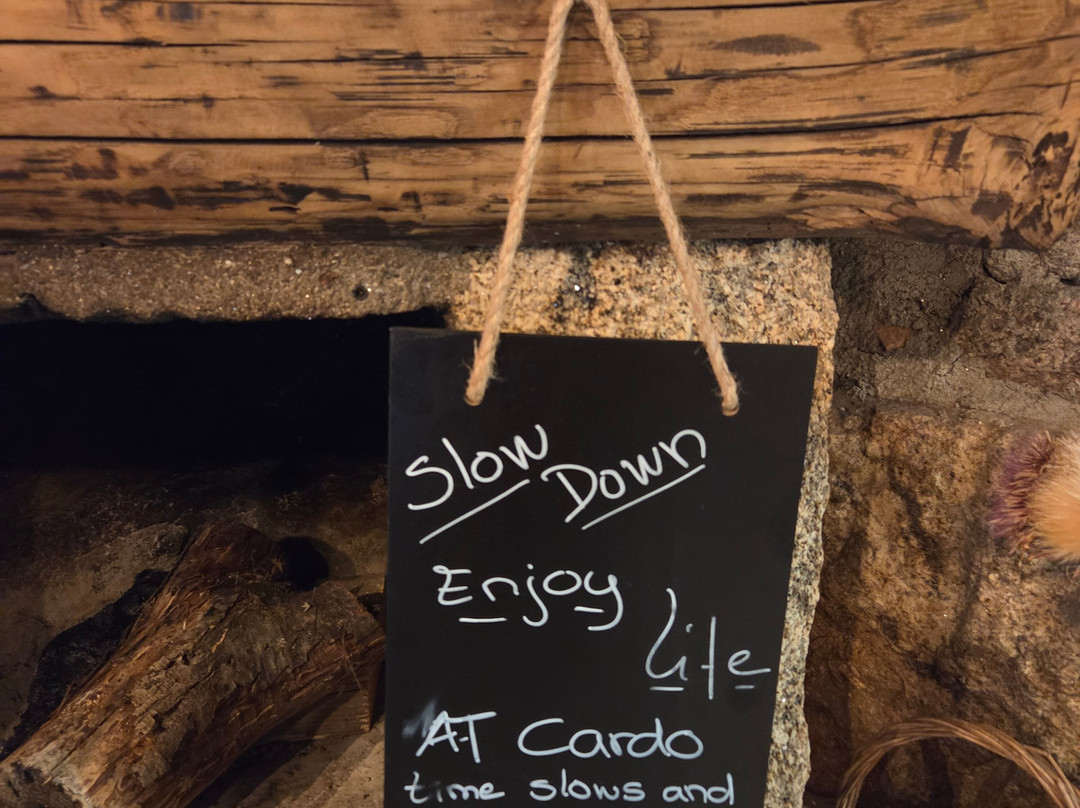 Slow Down
Enjoy
Life
AT Cardo
time slows and